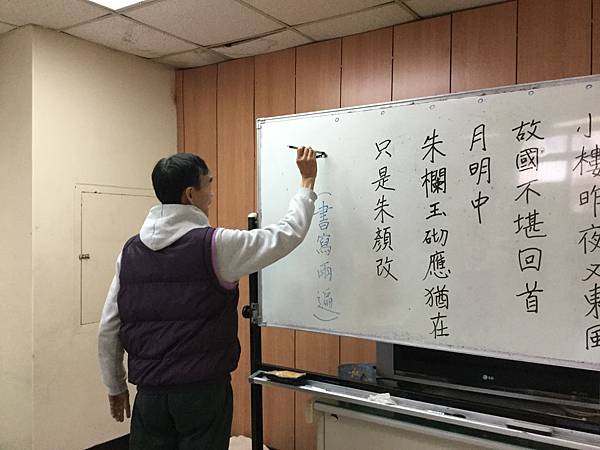 小樓昨夜又東風
故國不堪回首
月明中
朱欄玉砌應猶在
只是朱顏改
(書寫兩遍)
LG